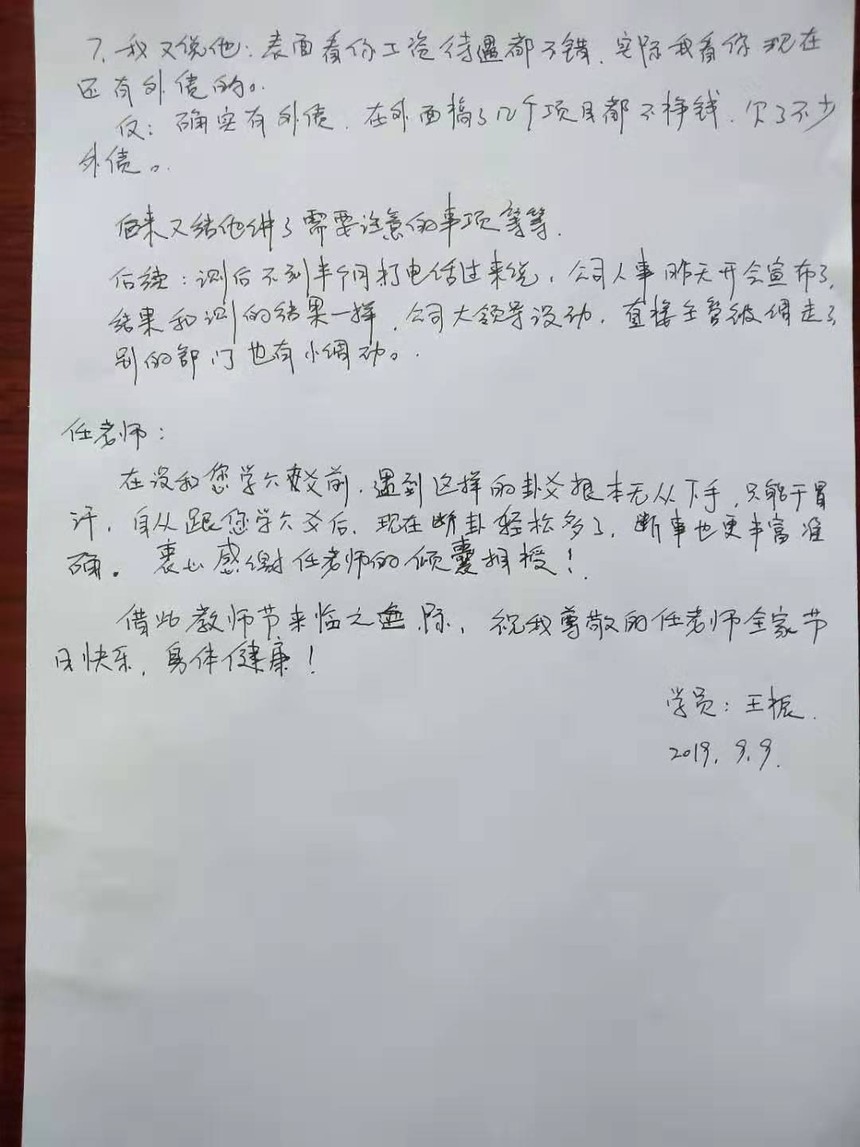 7、我又说他：表面看你工资待遇都不错，实际我看你现在
还有外债的。
反：确实有外债，在外面搞了几个项目都不挣钱，欠了不少
外债。
后来又给他讲了需要注意的事项等等。
后续：测后不到半个月打电话过来说，公司人事昨天开会宣布了，
结果和测的结果一样，公司大领导没动，直接主管被调走了
别的部门也有小调动。
任老师：
在没和您学六爻前，遇到这样的卦爻根本无从下手，只能干冒
汗，自从跟您学六爻后，现在断卦轻松多了，断事也更丰富准
确。衷心感谢任老师的倾囊相授！
借此教师节来临之际，祝我尊敬的任老师全家节
日快乐，身体健康！
学员：王振
2019.9.9.